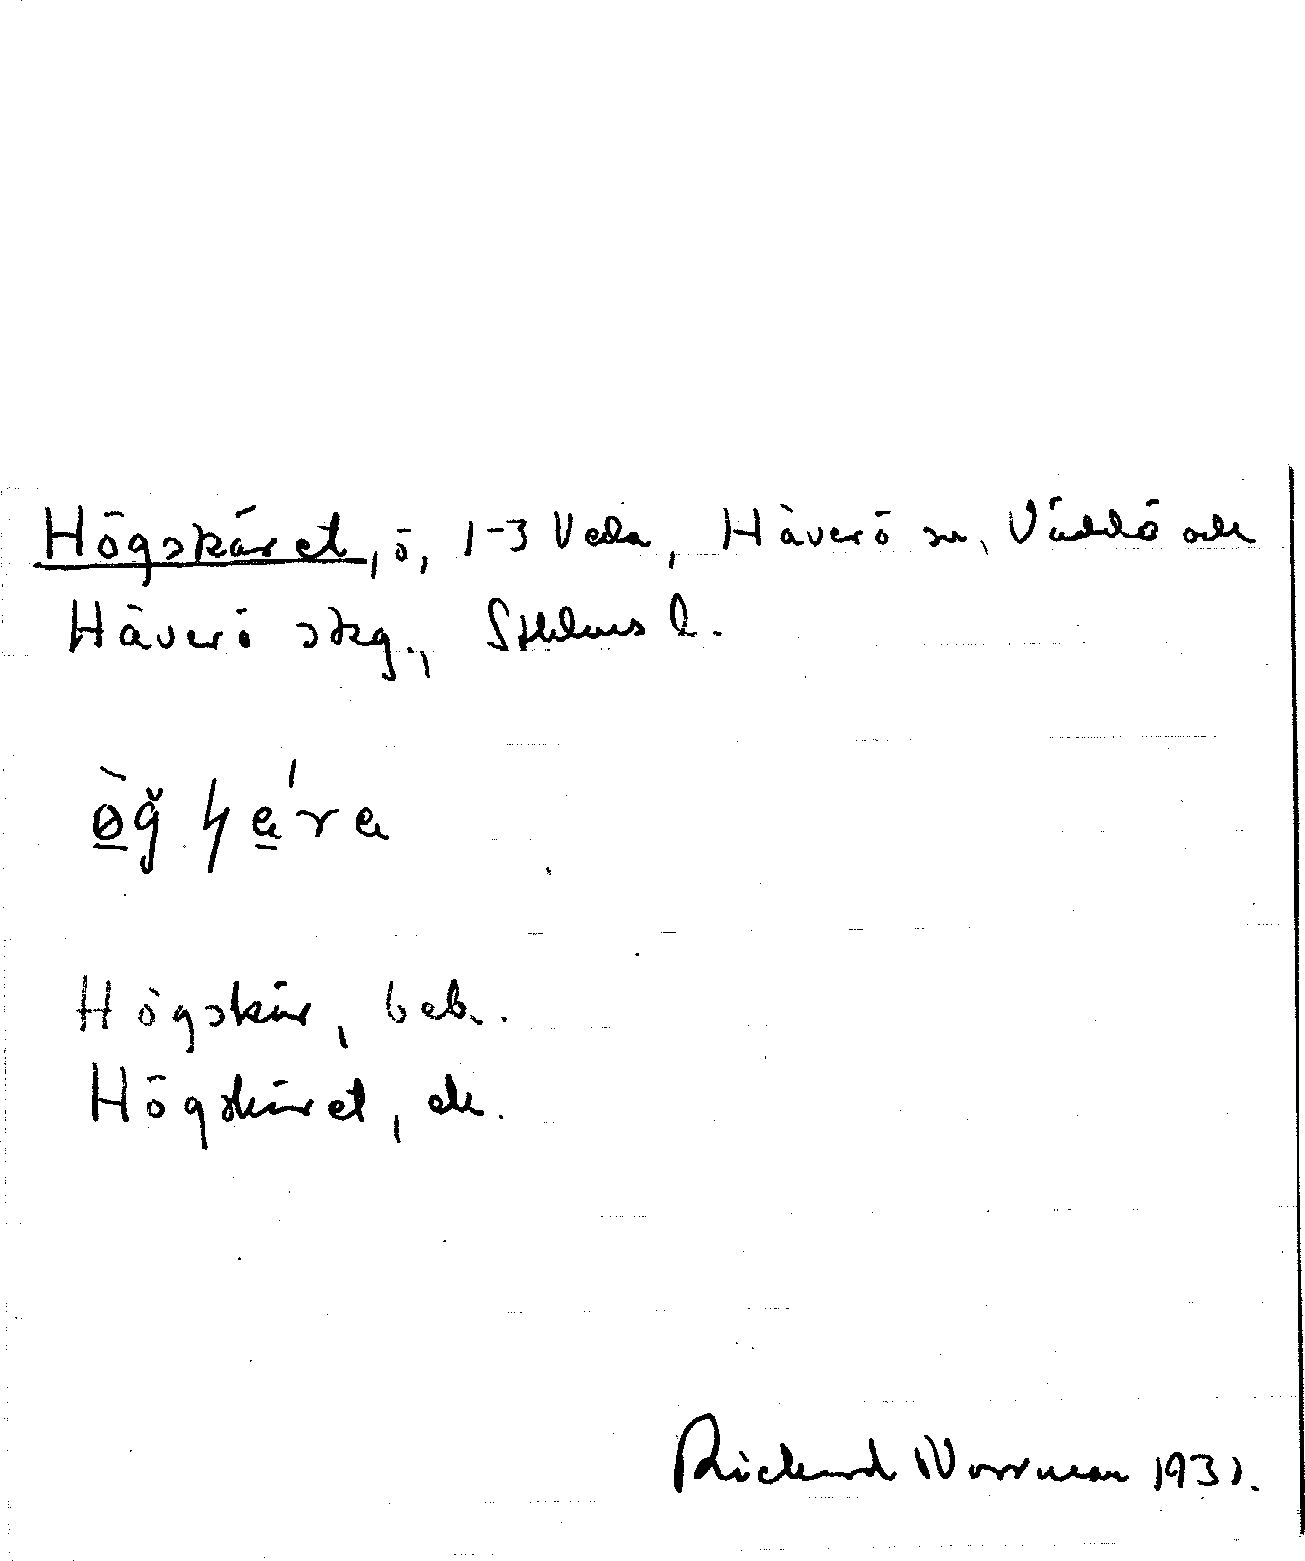 Högskäret, ö, 1-3 Veda, Häverö sn, Väddö och
Häverö skg., Sthlms l.
Högskär, beb.
Högskäret, ek.
Rickard Norrman